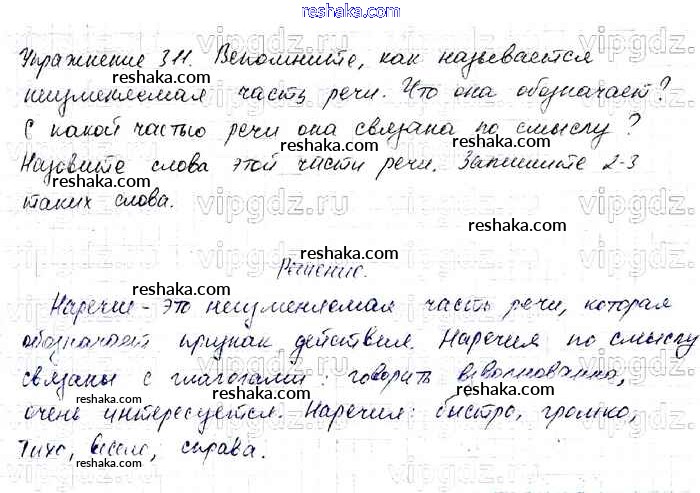 reshaka.com
Упражнение 311. Вспомните, как называется
неизменяемая часть речи. Что она обозначает?
С какой частью речи она связана по смыслу?
Назовите слова этой части речи. Запишите 2-3
таких слова.
Решение.
Наречие - это неизменяемая часть речи, которая
обозначает признак действия. Наречия по смыслу
связаны с глаголами: говорить взволнованно,
очень интересуется. Наречия: быстро, громко,
тихо, весело, справа.